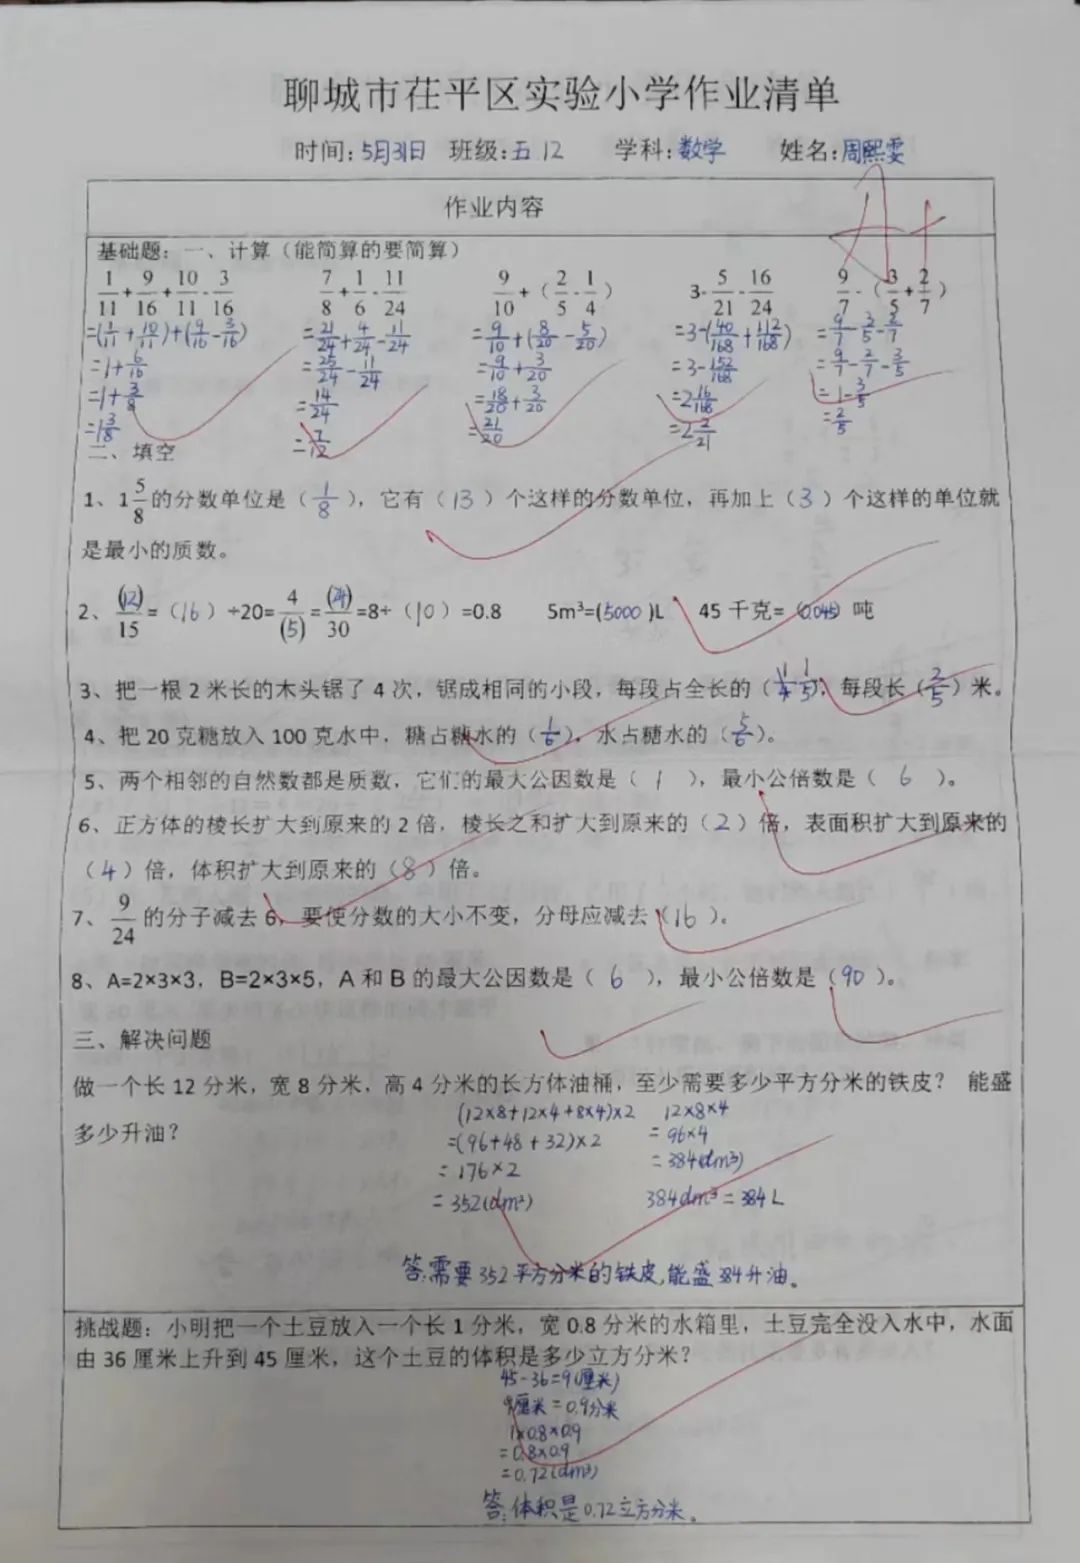 聊城市茌平区实验小学作业清单
时间:5月31日 班级:五.12 学科:数学 姓名:周熙雯
作业内容
A+
基础题：一、计算（能简算的要简算）
1/11+9/16+10/11-3/16 7/8+1/6-11/24 9/10+（2/5-1/4） 3-5/21-16/24 9/7-（3/5+2/7）
=(1/11+10/11)+(9/16-3/16) =21/24+4/24-11/24 =9/10+(8/20-5/20) =3-(40/168+112/168) =9/7-3/5-2/7
=1+6/16 =25/24-11/24 =9/10+3/20 =3-152/168 =9/7-2/7-3/5
=1+3/8 =14/24 =18/20+3/20 =2 16/168 =1-3/5
=1 3/8 =7/12 =21/20 =2 2/21 =2/5
二、填空
1、1 5/8的分数单位是（1/8），它有（13）个这样的分数单位，再加上（3）个这样的单位就
是最小的质数。
2、(12)/15=（16）÷20=4/(5)=(24)/30=8÷（10）=0.8 5m³=(5000)L 45千克=（0.045）吨
3、把一根2米长的木头锯了4次，锯成相同的小段，每段占全长的（1/5），每段长（2/5）米。
4、把20克糖放入100克水中，糖占糖水的（1/6），水占糖水的（5/6）。
5、两个相邻的自然数都是质数，它们的最大公因数是（1），最小公倍数是（6）。
6、正方体的棱长扩大到原来的2倍，棱长之和扩大到原来的（2）倍，表面积扩大到原来的
（4）倍，体积扩大到原来的（8）倍。
7、9/24的分子减去6，要使分数的大小不变，分母应减去（16）。
8、A=2×3×3，B=2×3×5，A和B的最大公因数是（6），最小公倍数是（90）。
三、解决问题
做一个长12分米，宽8分米，高4分米的长方体油桶，至少需要多少平方分米的铁皮？ 能盛
多少升油？
(12×8+12×4+8×4)×2 12×8×4
=(96+48+32)×2 =96×4
=176×2 =384(dm³)
=352(dm²) 384dm³=384L
答:需要352平方分米的铁皮,能盛384升油。
挑战题：小明把一个土豆放入一个长1分米，宽0.8分米的水箱里，土豆完全没入水中，水面
由36厘米上升到45厘米，这个土豆的体积是多少立方分米？
45-36=9(厘米)
9厘米=0.9分米
1×0.8×0.9
=0.8×0.9
=0.72(dm³)
答:体积是0.72立方分米。